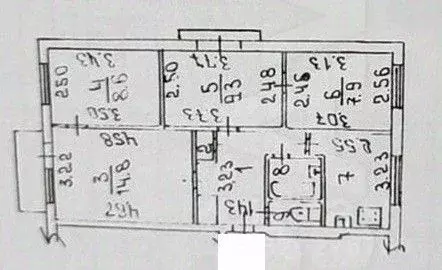 3.43
2.50
4
8.6
3.50
3.77
2.50
5
9.3
2.48
3.73
3.13
2.46
6
7.9
2.56
3.07
4.58
3.22
3
14.8
4.57
2
3.23
1
1.43
8
2.55
7
3.23